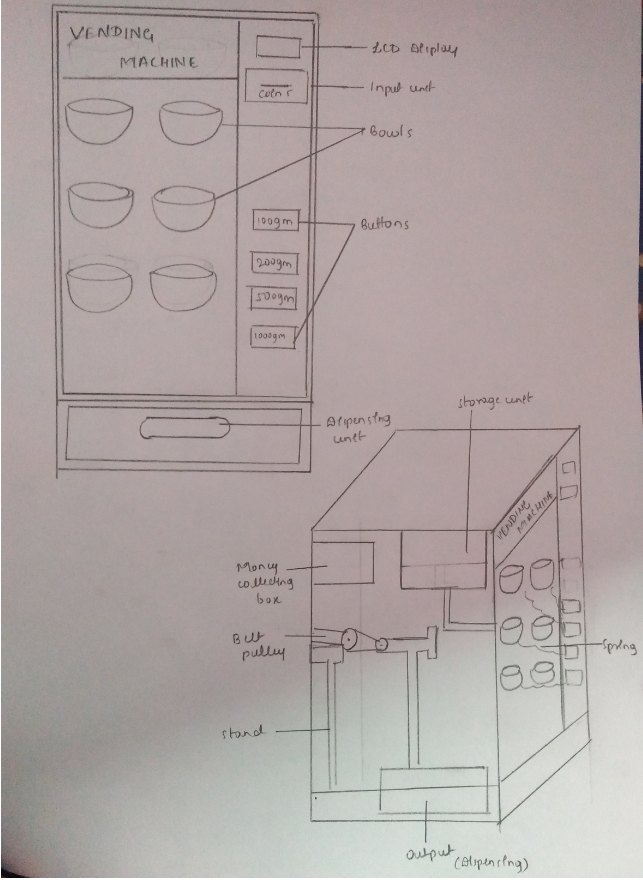 VENDING
MACHINE
LCD Display
coins
Input unit
Bowls
100gm
Buttons
200gm
500gm
1000gm
Dipensing
unit
storage unit
VENDING
MACHINE
Money
collecting
box
Belt
pulley
Spring
stand
output
(Dipensing)